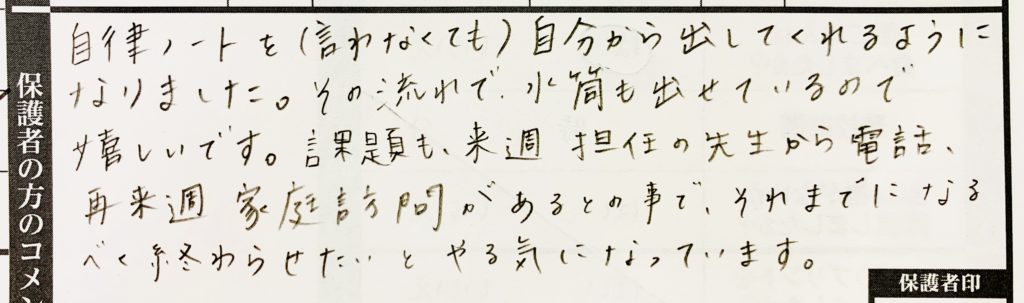 保護者の方のコメン
自律ノートを(言わなくても)自分から出してくれるように
なりました。その流れで、水筒も出せているので
嬉しいです。課題も、来週 担任の先生から電話、
再来週 家庭訪問があるとの事で、それまでになる
べく終わらせたいとやる気になっています。
保護者印